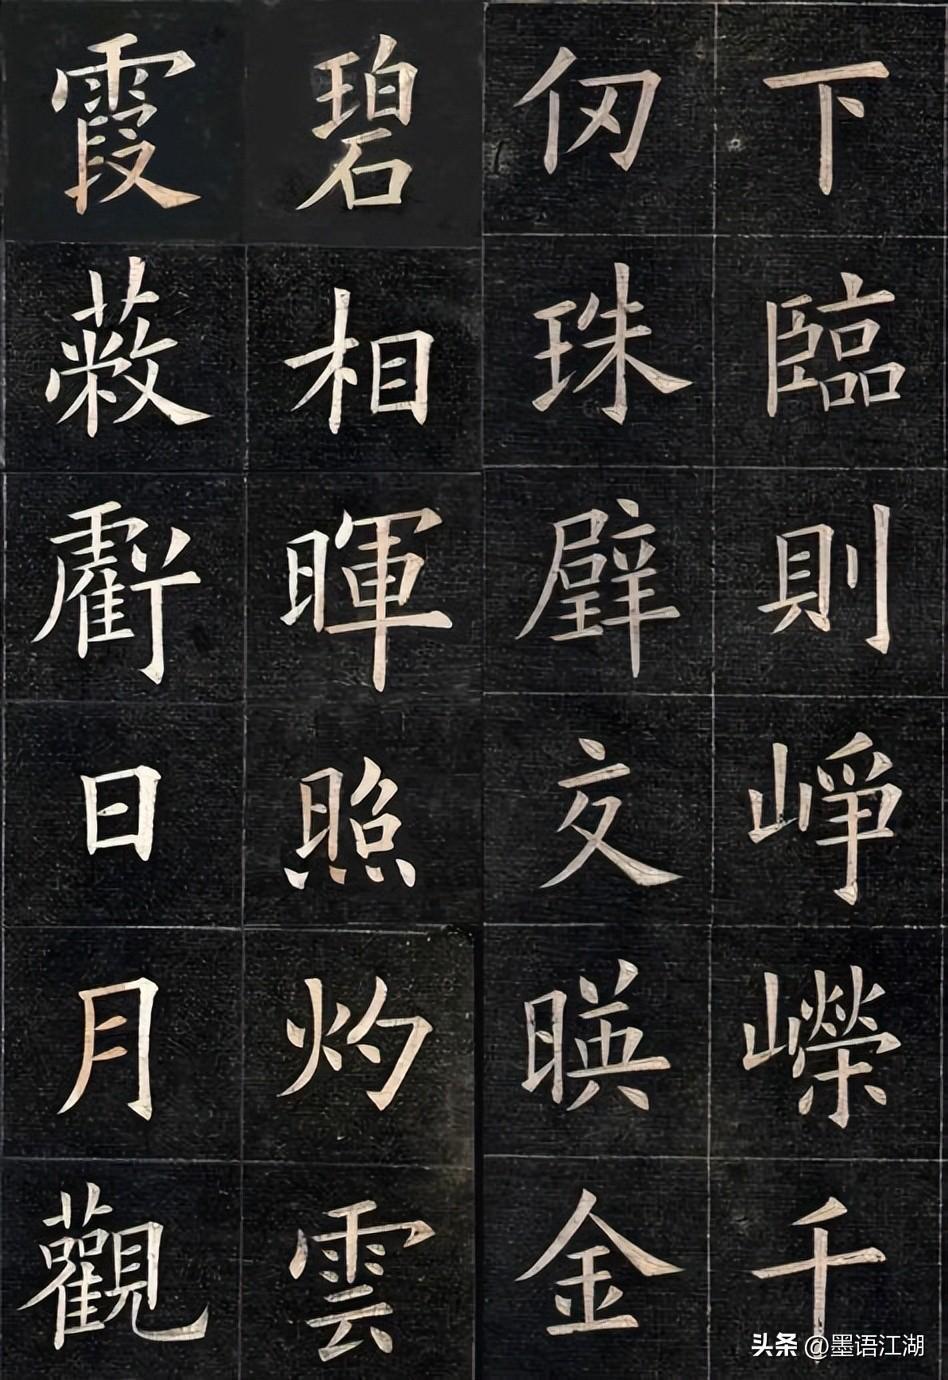 下臨則崢嶸千
仞珠壁交暎金
碧相暉照灼雲
霞蔽虧日月觀
头条 @墨语江湖